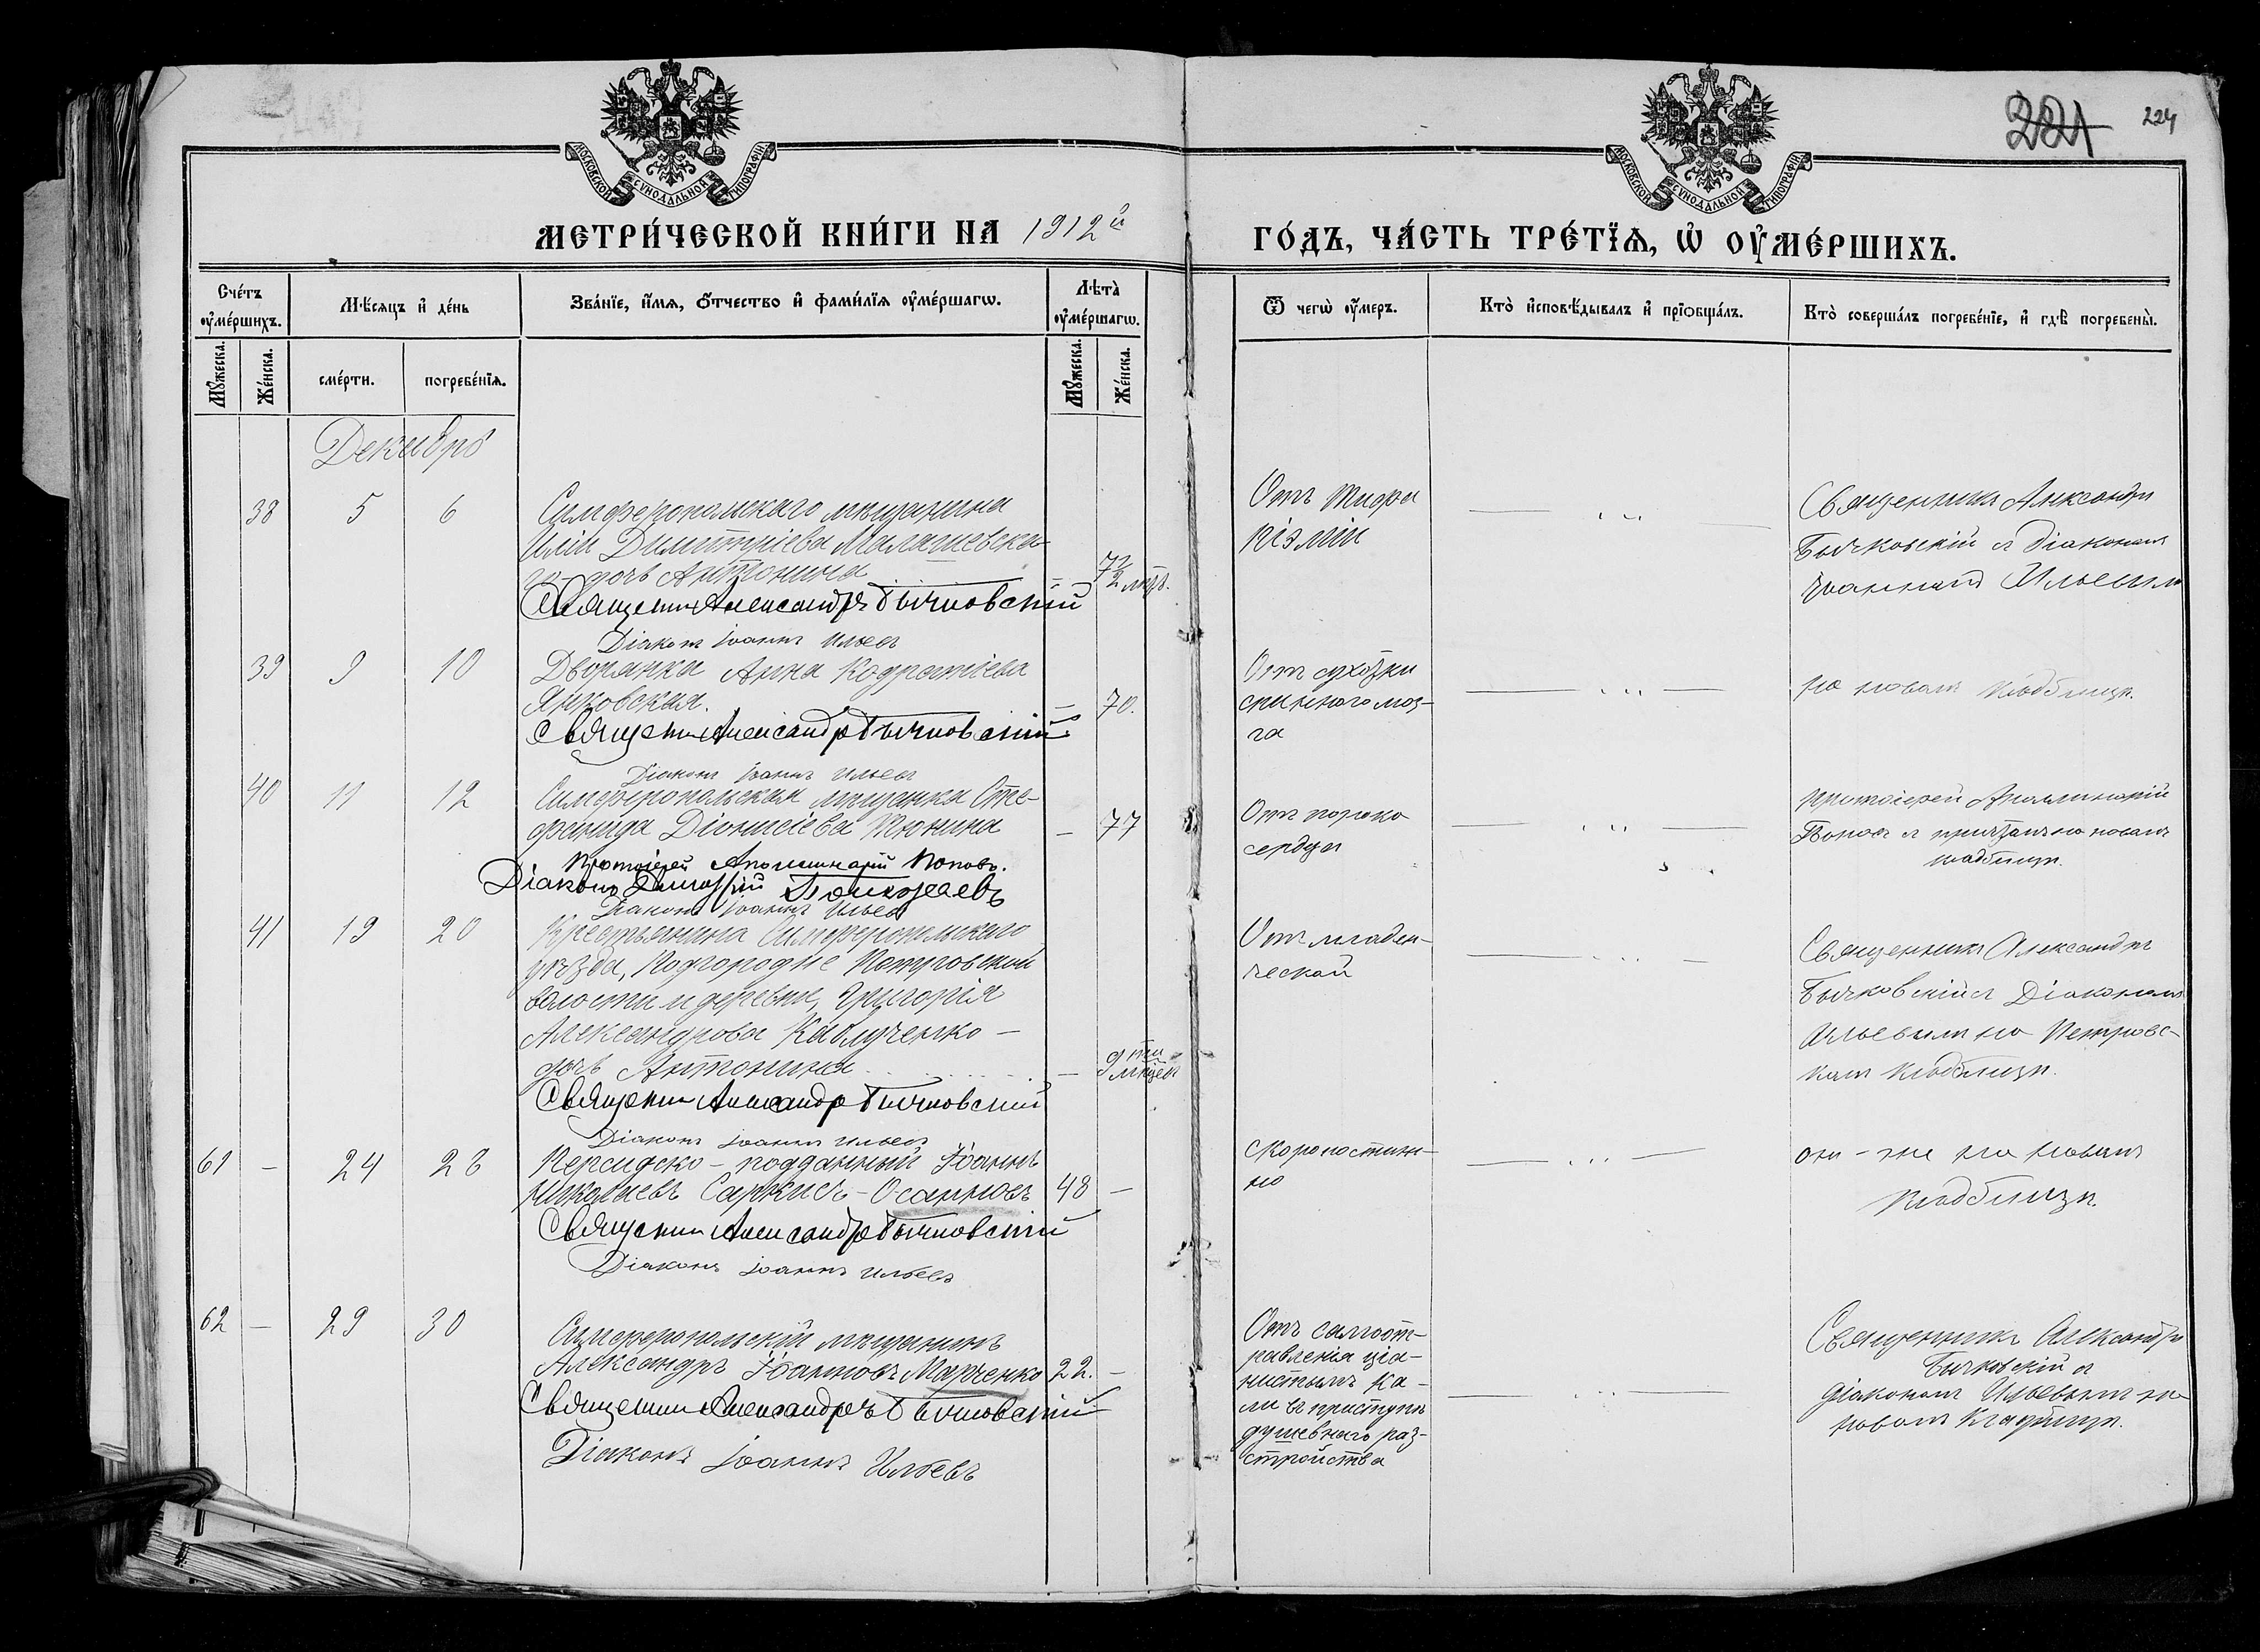 224
МОСКОВСКОЙ СѴНОДАЛЬНОЙ ТИПОГРАФІИ
МОСКОВСКОЙ СѴНОДАЛЬНОЙ ТИПОГРАФІИ
МЕТРИ́ЧЕСКОЙ КНИ́ГИ НА 1912й ГО́ДЪ, ЧА́СТЬ ТРЕ́ТЇѦ, Ѡ҆ ОУ҆МЕ́РШИХЪ.
Сче́тъ оу҆ме́ршихъ.
Мѣ́сѧцъ и҆ де́нь
Зва́нїе, и҆́мѧ, ѻ҆́тчество и҆ фами́лїѧ оу҆ме́ршагѡ.
Лѣта̀ оу҆ме́ршагѡ.
Ѿ чегѡ̀ оу҆́меръ.
Кто̀ и҆сповѣ́дывалъ и҆ прїѡбща́лъ.
Кто̀ соверша́лъ погребе́нїе, и҆ гдѣ̀ погребены̀.
Мꙋ́жеска.
Же́нска.
сме́рти.
погребе́нїѧ.
Мꙋ́жеска.
Же́нска.
Декабрь
38 5 6 Симферопольскаго мѣщанина
Иліи Димитріева Малашевска-
го дочь Антонина
Священник Александръ Бычковскій
Діаконъ Іоаннъ Ильевъ
Отъ
піэміи
Священникъ Александръ
Бычковскій съ діакономъ
Іоанномъ Ильевымъ
39 9 10 Дворянка Анна Кодратіева
Янковская. — 70.
Священник Александръ Бычковскій
Діаконъ Іоаннъ Ильевъ
Отъ сухотки
спинного моз-
га
на новомъ кладбищѣ.
40 11 12 Симферопольская мѣщанка Сте-
фанида Діонисіева — 77
Протоіерей Аполлинарій Поповъ.
Діаконъ
Діаконъ Іоаннъ Ильевъ
Отъ порока
сердца
Протоіерей Аполлинарій
Поповъ съ причтомъ на новомъ
кладбищѣ.
41 19 20 Крестьянина Симферопольскаго
уѣзда, Подгородне Петровской
волости и деревни, Григорія
Александрова Каблученко —
дочь Антонина — 9 ти мѣсяц
Священник Александръ Бычковскій
Діаконъ Іоаннъ Ильевъ
Отъ младен-
ческой
Священникъ Александръ
Бычковскій съ Діакономъ
Ильевымъ на Петровс-
комъ кладбищѣ.
61 — 24 28 Персидско-подданный Іоаннъ
Николаевъ Саркисъ-Осанновъ 48 —
Священник Александръ Бычковскій
Діаконъ Іоаннъ Ильевъ
Скоропостиж-
но
они-же на новомъ
кладбищѣ.
62 — 29 30 Симферопольскій мѣщанинъ
Александръ Іоанновъ Марченко 22. —
Священник Александръ Бычковскій
Діаконъ Іоаннъ Ильевъ
Отъ самоот-
равленія ціа-
нистымъ ка-
ли въ приступѣ
душевнаго раз-
стройства
Священникъ Александръ
Бычковскій съ
діакономъ Ильевымъ на
новомъ кладбищѣ.